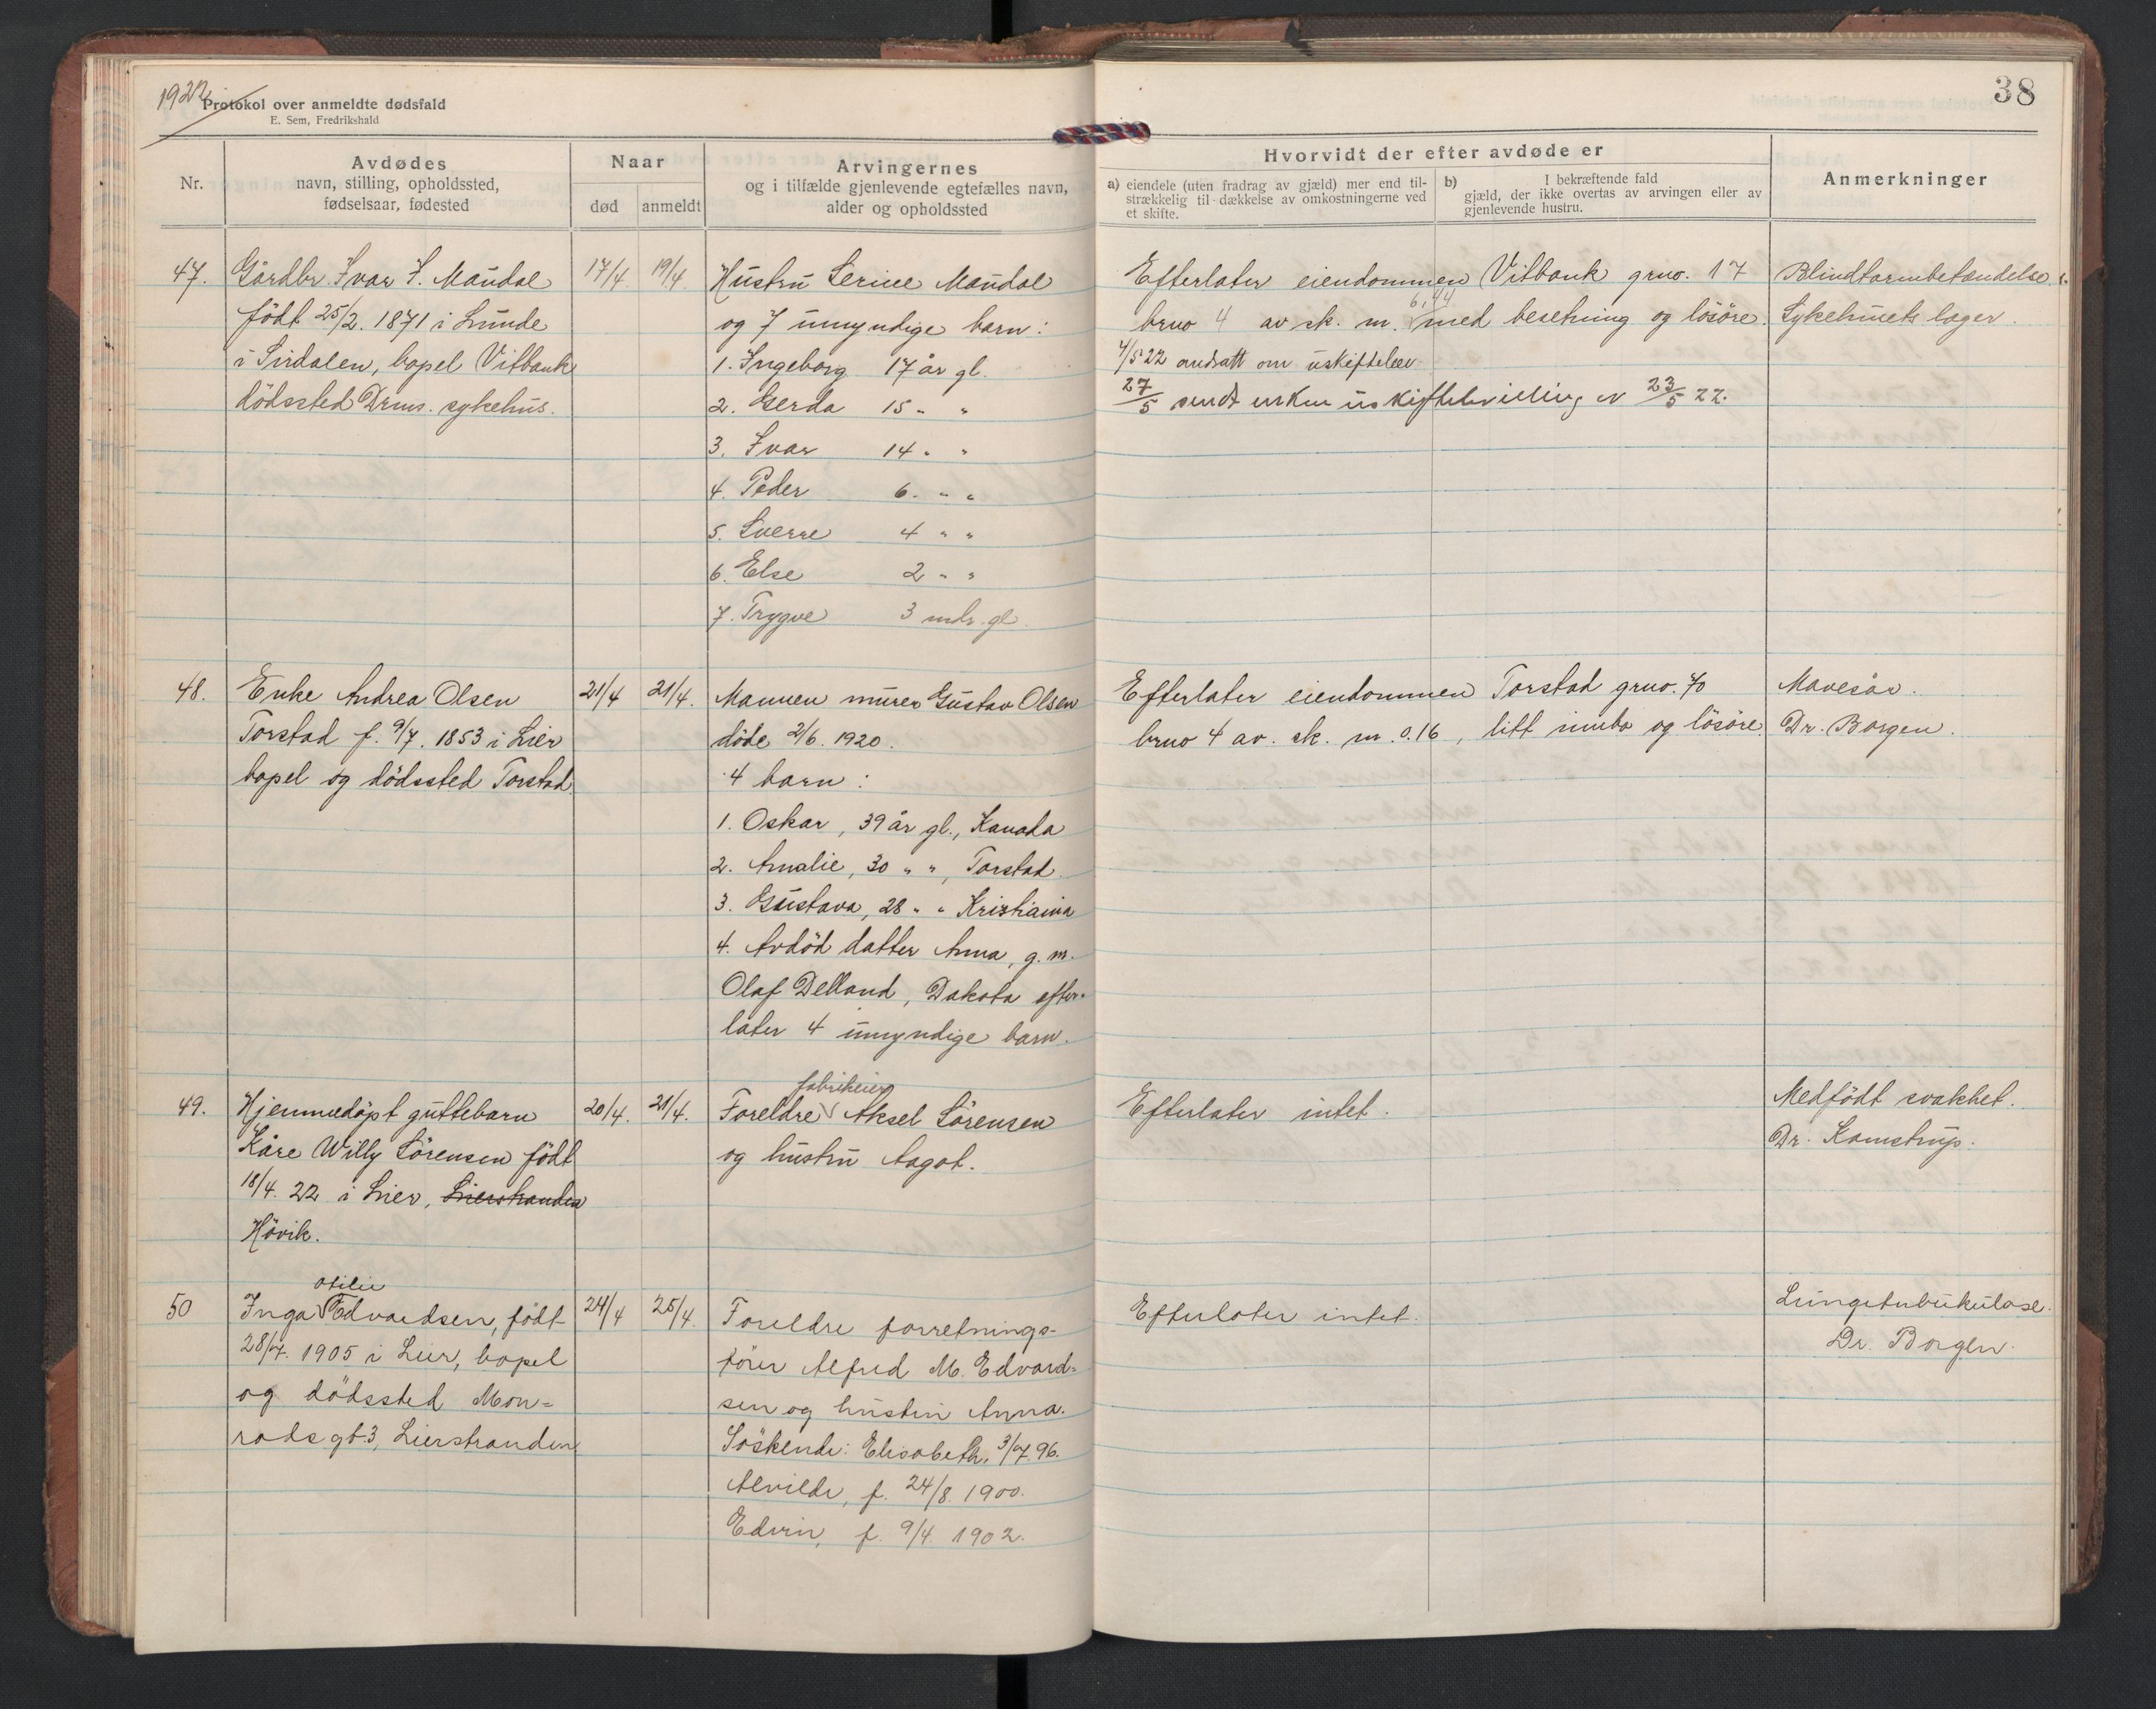 1922
Protokol over anmeldte dødsfald
E. Sem, Fredrikshald
38
Nr.
Avdødes
navn, stilling, opholdssted,
fødselsaar, fødested
Naar
død
anmeldt
Arvingernes
og i tilfælde gjenlevende egtefælles navn,
alder og opholdssted
Hvorvidt der efter avdøde er
a) eiendele (uten fradrag av gjæld) mer end til-
strækkelig til dækkelse av omkostningerne ved
et skifte.
b) I bekræftende fald
gjæld, der ikke overtas av arvingen eller av
gjenlevende hustru.
Anmerkninger
47.
Gårdbr. Ivar I. Maudal
født 25/2. 1871 i Lunde
i Sirdalen, bopel Vitbank
dödssted Drms. sykehus.
17/4
19/4
Hustru Serine Maudal
og 7 umyndige barn:
1. Ingeborg 17 år gl.
2. Gerda 15 " "
3. Ivar 14 " "
4. Peder 6 " "
5. Sverre 4 " "
6. Else 2 " "
7. Trygve 3 mdr. gl.
Efterlater eiendommen Vitbank grno. 17
6,44
brno 4 av sk. m. med besetning og lösöre.
4/5 22 andratt om uskiftebev.
27/5 sendt enken uskiftebevilling av 23/5 22.
Blindtarmbetændelse
Sykehusets læger.
48.
Enke Andrea Olsen
Torstad f. 9/7. 1853 i Lier
bopel og dödssted Torstad.
21/4
21/4.
Mannen murer Gustav Olsen
döde 2/6. 1920.
4 barn:
1. Oskar, 39 år gl., Kanada
2. Amalie, 30 " ", Torstad.
3. Gustava, 28 " " Kristiania
4. Avdöd datter Anna, g. m.
Olaf Delland, Dakota efter-
later 4 umyndige barn.
Efterlater eiendommen Torstad grno. 70
brno 4 av. sk. m. 0.16, litt innbo og lösöre.
Mavesår.
Dr. Borgen.
49.
Hjemmedöpt guttebarn
Kåre Willy Sörensen født
18/4. 22 i Lier, Lierstranden
Hövik.
20/4.
21/4.
fabrikeier
Foreldre Aksel Sörensen
og hustru Aagot.
Efterlater intet.
Medfödt svakhet.
Dr. Kamstrup.
50
Otilie
Inga Edvardsen, født
28/7. 1905 i Lier, bopel
og dödssted Mon-
rads gt 3, Lierstranden
24/4
25/4.
Foreldre forretnings-
förer Alfred M. Edvard-
sen og hustru Anna.
Söskende: Elisabeth, 3/7. 96.
Alvilde, f. 24/8. 1900.
Edvin, f. 9/4. 1902.
Efterlater intet.
Lungetuberkulose.
Dr. Borgen.